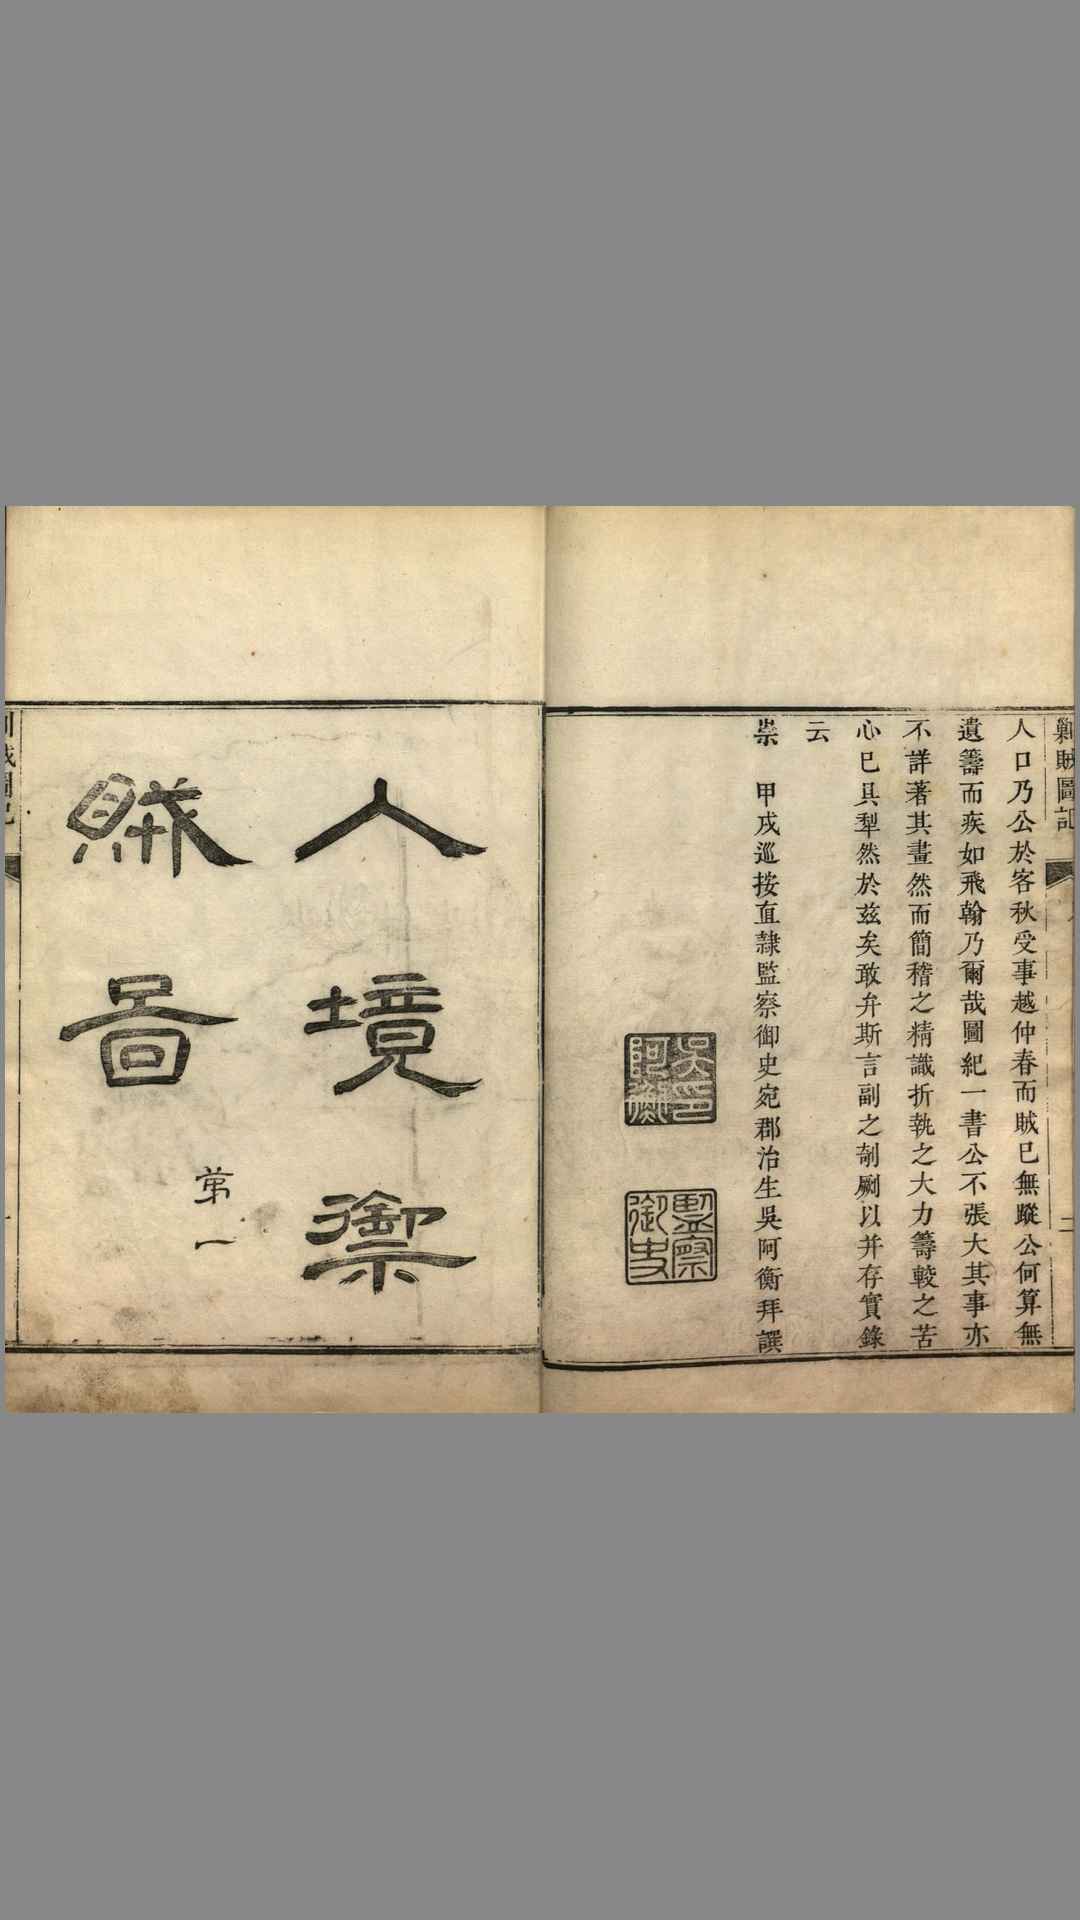 剿賊圖記
二
人口乃公於客秋受事越仲春而賊已無蹤公何算無
遺籌而疾如飛翰乃爾哉圖紀一書公不張大其事亦
不詳著其畫然而簡稽之精識折執之大力籌較之苦
心已具犁然於茲矣敢弁斯言副之剞劂以并存實錄
云
崇　甲戌巡按直隷監察御史宛郡治生吳阿衡拜譔
吳印阿衡
監察御史
入境禦
賊圖
第一